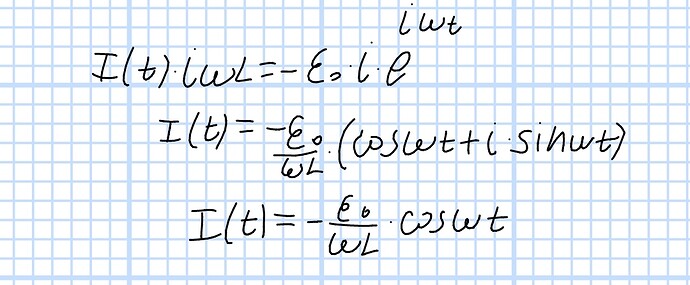 I(t)·iωL=-ε₀·i·e^{iωt}
I(t)=\frac{-ε₀}{ωL}·(cosωt+i·sinωt)
I(t)=-\frac{ε₀}{ωL}·cosωt